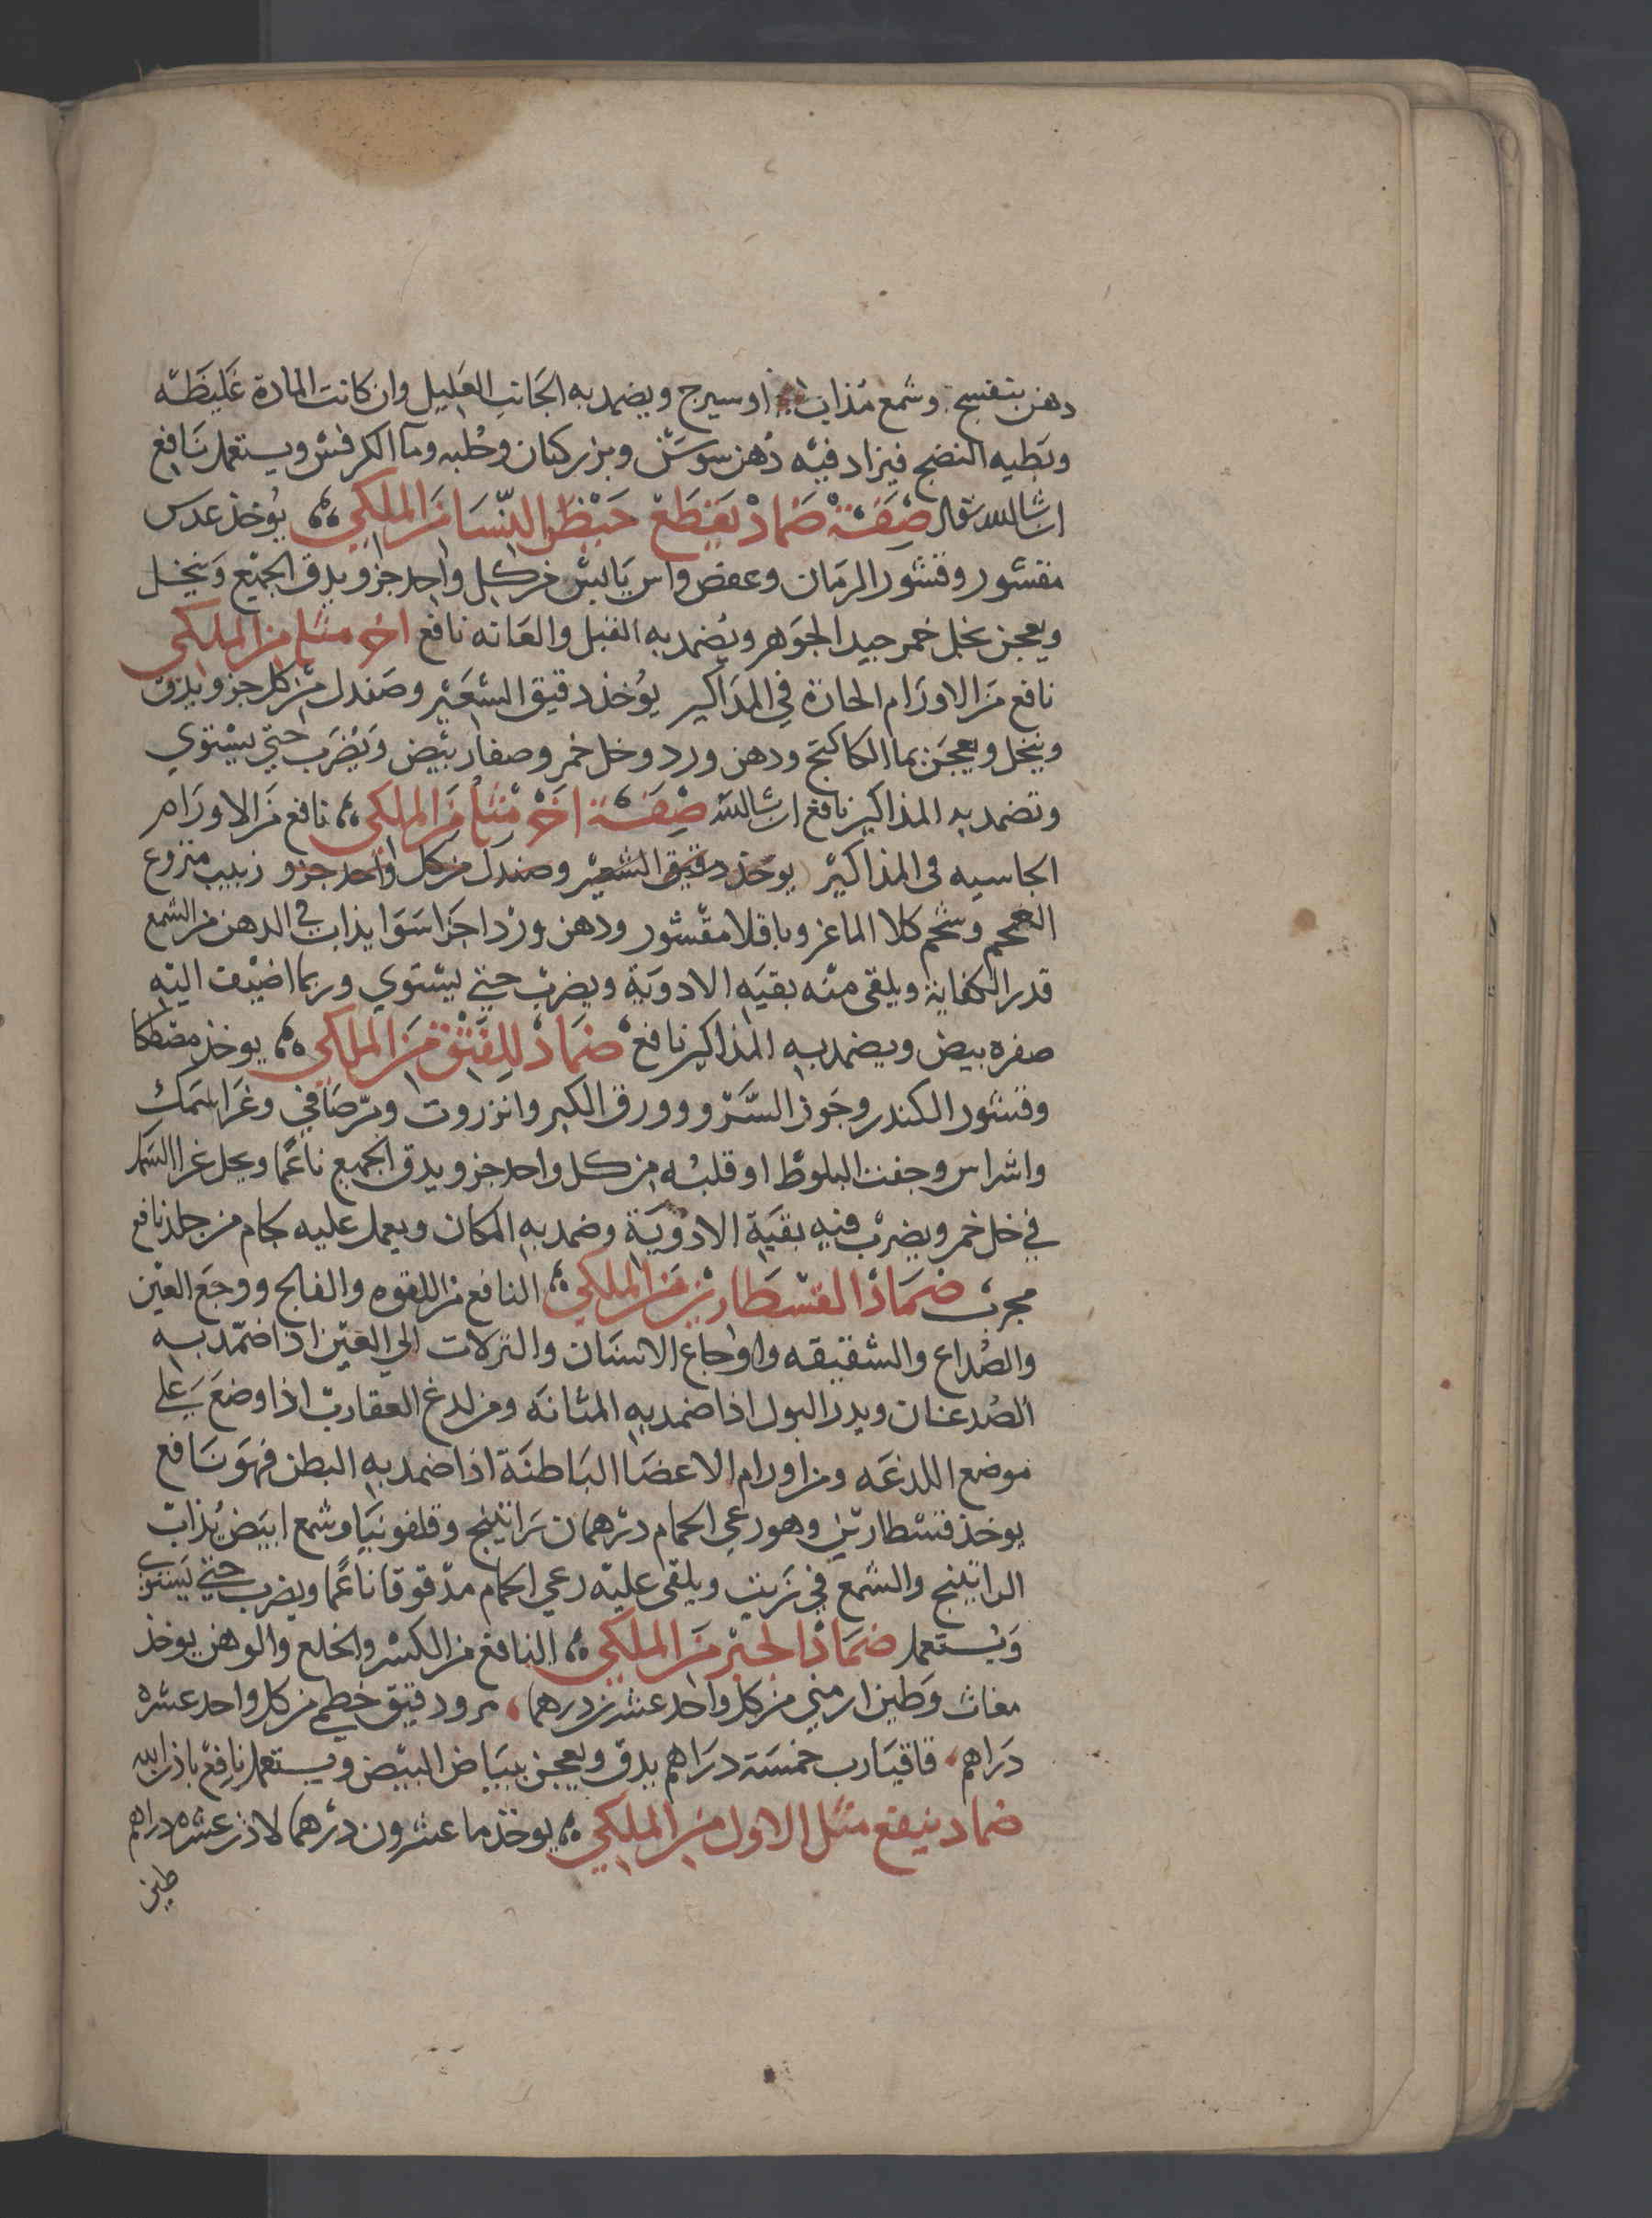 دهن بنفسج وشمع مذاب او سيرج ويضمد به الجانب العليل وان كانت المادة غليظه
وبطيه النضج فيزاد فيه دهن سوسن وبزر كتان وحلبه وما الكرفس ويستعمل نافع
ان شا الله تعالى صفة ضماد يقطع حيض النسا من الملكي يوخذ عدس
مقشور وقشور الرمان وعفص واس يابس من كل واحد جزو يدق الجميع وينخل
ويعجن بخل خمر جيد الجوهر ويضمد به القبل والعانه نافع اخر مثله من الملكي
نافع من الاورام الحارة في المذاكير يوخذ دقيق الشعير وصندل من كل جزو يدق
وينخل ويعجن بما الكاكنج ودهن ورد وخل خمر وصفار بيض ويضرب حتى يستوي
وتضمد به المذاكير نافع ان شا الله صفة اخر مثله من الملكي نافع من الاورام
الجاسيه في المذاكير يوخذ دقيق الشعير وصندل من كل واحد جزو زبيب منزوع
العجم وشحم كلا الماعز وباقلا مقشور ودهن ورد اجزا سوا يذاب في الدهن من الشمع
قدر الكفاية ويلقى منه بقيه الادوية ويضرب حتى يستوي وربما اضيف اليه
صفره بيض ويضمد به المذاكير نافع ضماد للفتق من الملكي يوخذ مصطكا
وقشور الكندر وجوز السرو وورق الكبر وانزروت ومر صافي وغرا سمك
واشراس وجفت البلوط او قلبه من كل واحد جزو يدق الجميع ناعما ويحل غرا السمك
في خل خمر ويضرب فيه بقية الادوية وضمد به المكان ويعمل عليه كام من جلد نافع
مجرب ضماد القسطارين من الملكي النافع من اللقوه والفالج ووجع العين
والصداع والشقيقه واوجاع الاسنان والنزلات الى العين اذا ضمد به
الصدغان ويدر البول اذا ضمد به المثانه ومن لدغ العقارب اذا وضع على
موضع اللدغه ومن اورام الاعضا الباطنة اذا ضمد به البطن فهو نافع
يوخذ قسطارين وهو رعي الحمام درهمان راتينج وقلفونيا وشمع ابيض يذاب
الراتينج والشمع في زيت ويلقى عليه رعي الحمام مدقوقا ناعما ويضرب حتى يستوى
ويستعمل ضماد الجبر من الملكي النافع من الكسر والخلع والوهن يوخذ
مغاث وطين ارمني من كل واحد عشرين درهما مر ودقيق خطمي من كل واحد عشره
دراهم قاقيا رب خمسة دراهم يدق ويعجن ببياض البيض ويستعمل نافع باذن الله
ضماد ينفع مثل الاول من الملكي يوخذ ما عشرون درهما لاذن عشره دراهم
طين